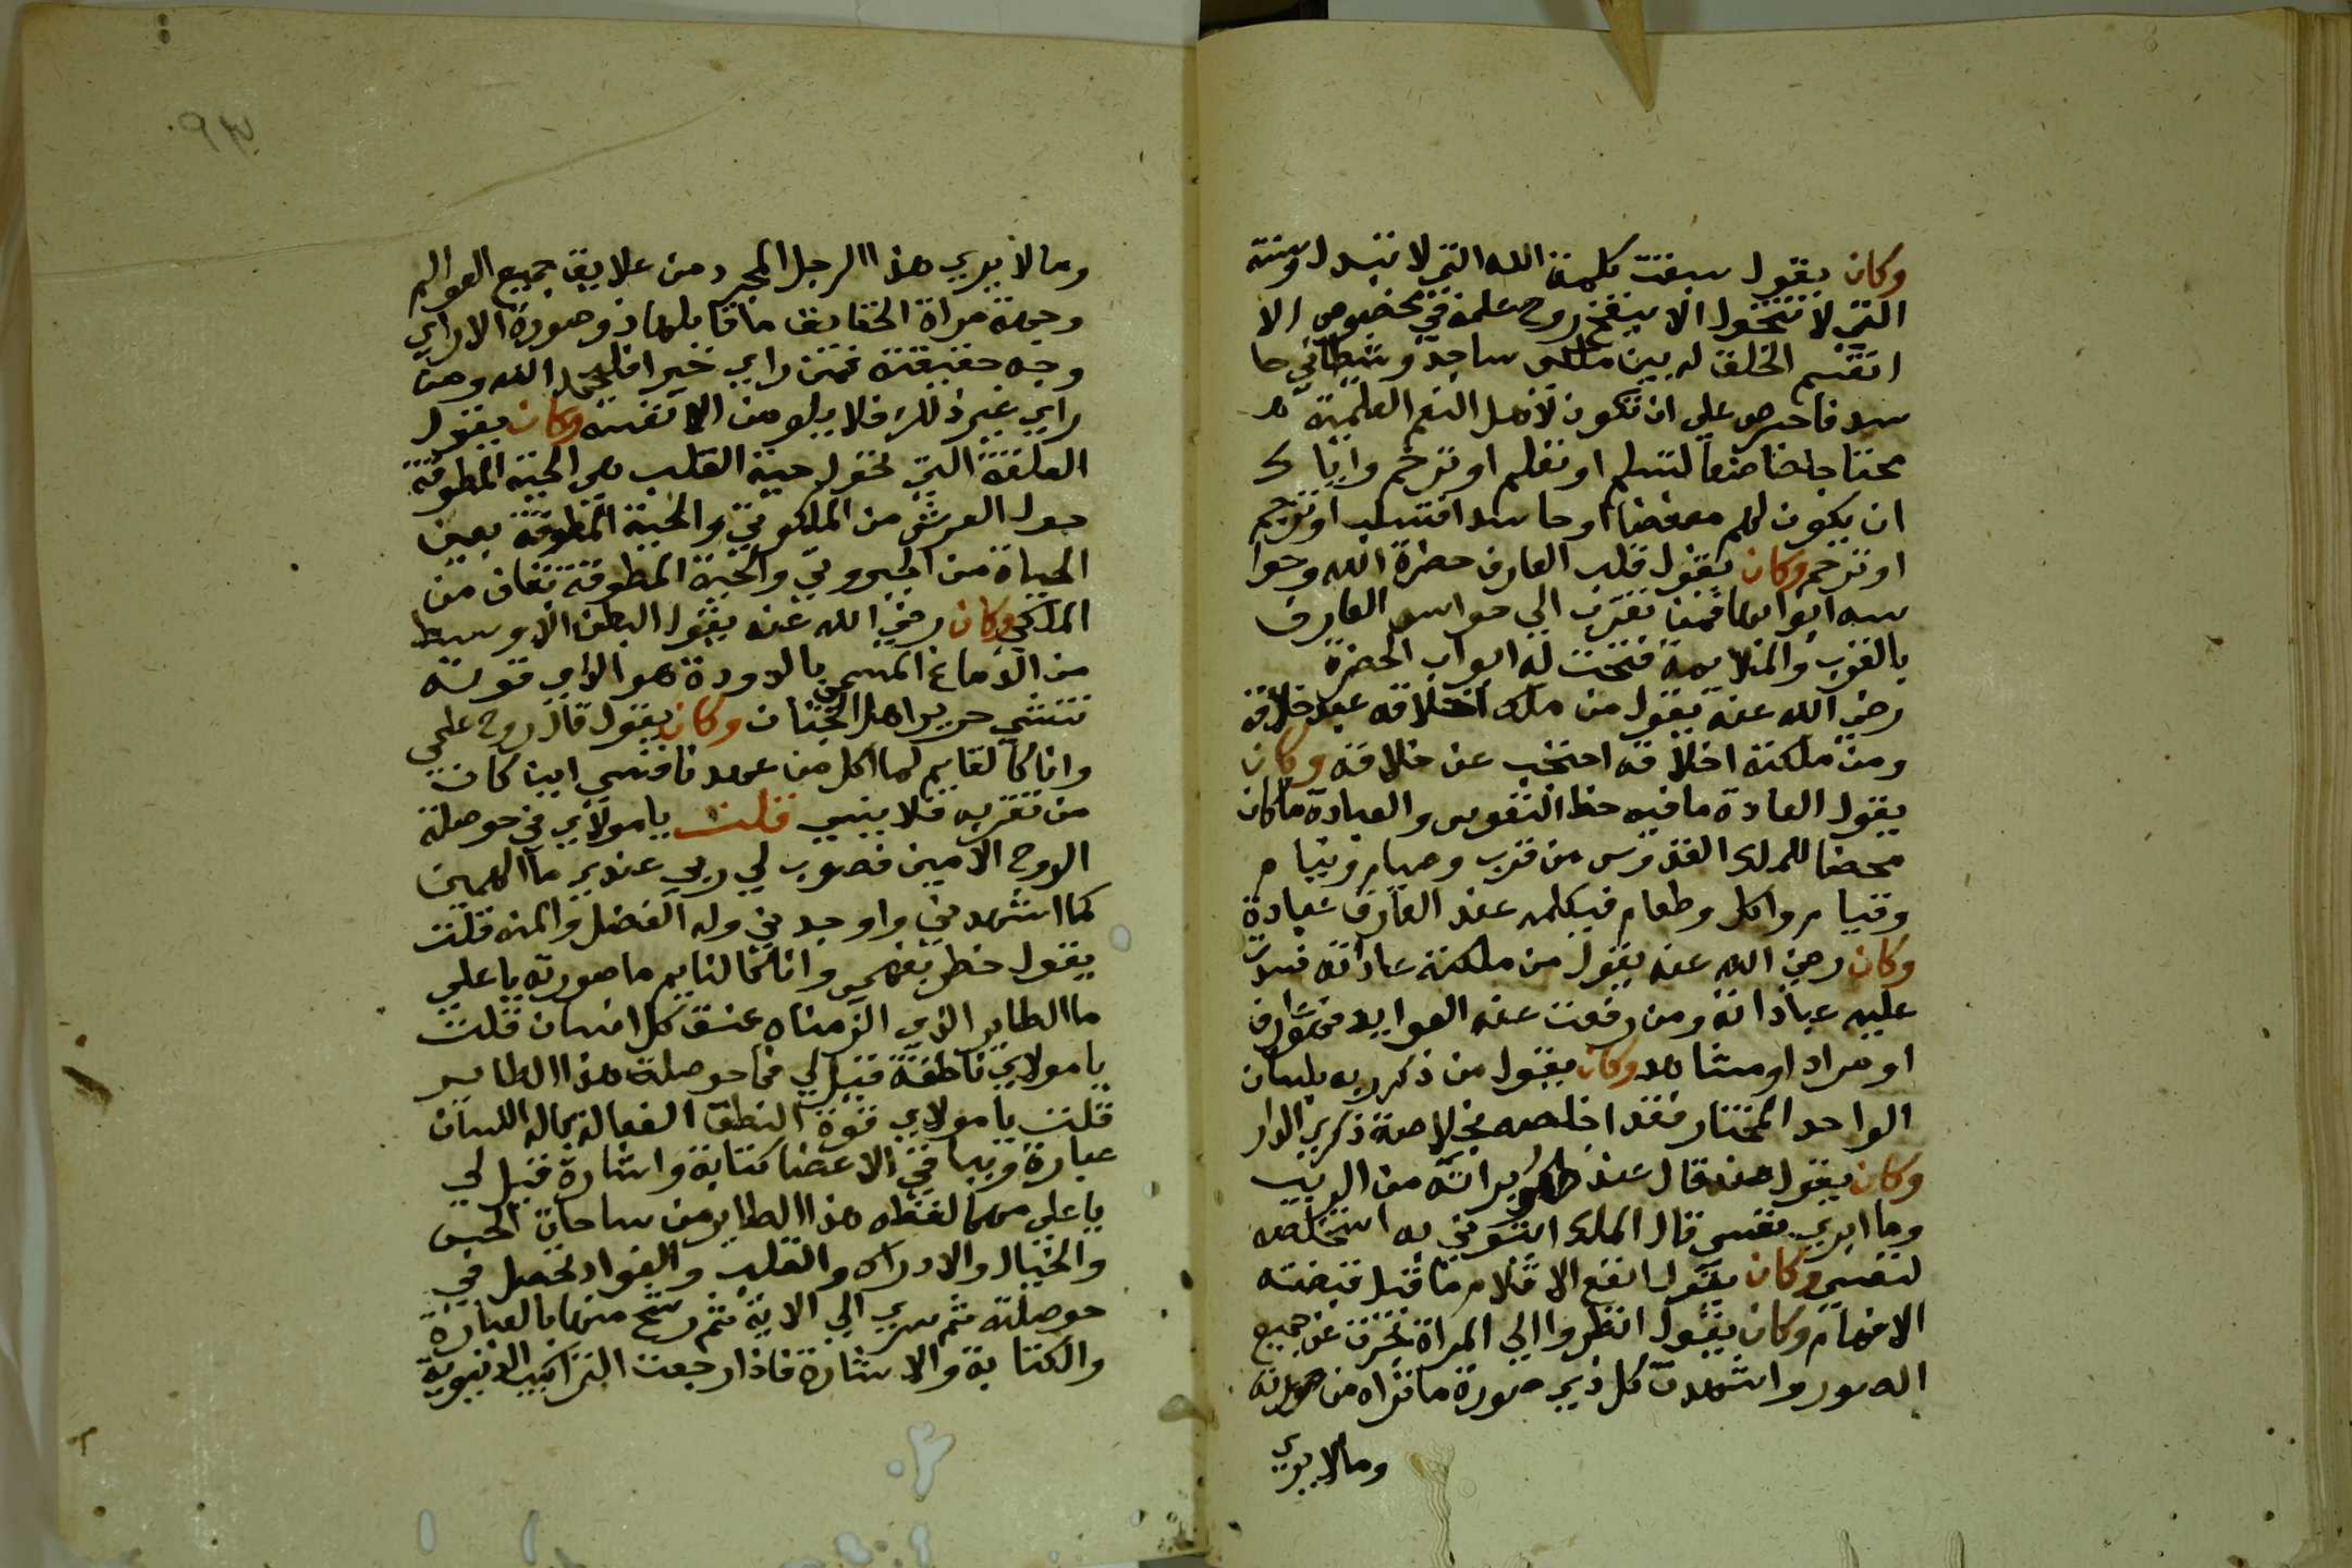 وكان يقول سبقت كلمة الله التي لا تتبدل وسنته
التي لا تتحول الا ينفخ روح علمه في مخصوص الا
انقسم الخلق له بين ملكى ساجد وشيطاني حا
سد فاحرص على ان تكون لاهل النعم العلمية
محتا خاضعا لتسلم او تغلم او ترحم واياك
ان يكون لهم مبغضا او حاسدا فتسلب او ترجم
او ترحم وكان يقول قلب العارف حضرة الله وحوا
سه ابوابها فمن تقرب الي حواس العارف
بالقرب والملايمة فتحت له ابواب الحضرة
رضي الله عنه يقول من ملك اخلاقه عبد خلاقه
ومن ملكته اخلاقه احتجب عن خلاقه وكان
يقول العادة ما فيه حظ النفوس والعبادة ما كان
محضا للملك القدوس من قرب وصيام ونيام
وقيام واكل وطعام فبكلمه عند العارف عبادة
وكان رضي الله عنه يقول من ملكته عاداته فسدت
عليه عباداته ومن رفعت عنه العوايد فهو عارف
او مراد او مشاهد وكان يقول من ذكر ربه بلسان
الواحد المختار فقد اخلصه بخلاصة ذكري الدار
وكان يقول قال عند ظهور براته من الريب
وما ابري نفسي قال الملك ايتوني به استخلصه
لنفسي وكان يقول انفع الاقلام ما قبل قبضته
الافهام وكان يقول انظروا الي المراة تجردت عن جميع
الصور واشهدت كل ذي صورة ما تراه من صورته
وما لا يري
وما لا يري هذا الرجل المجرد من علايق جميع العوالم
وجهة مراة الحقايق ما قابلها ذو صورة الا راي
وجه حقيقته فمن راي خيرا فليحمد الله ومن
راي غير ذلك فلا يلومن الا نفسه وكان يقول
العلقة التي تحول حبة القلب هي الحية المطوقة
حول العرش من الملكوتي والحية المطوقة بعين
الحياة من الجبروتي والحية المطوقة تقاف من
الملكي وكان رضي الله عنه يقول البطن الاوسط
من الدماغ المسمي بالدودة هو الذي قوته
تنشي حرير اهل الجنان وكان يقول قال روح علمي
وانا كالقايم كما اكل من عهدنا فنسي ابنا كان
من تقربه فلا ينسي قلت يا مولاي في حوصلة
الروح الامين فصوب لي ربي عندي ما الهمني
كما اشهدني واوجدني وله الفضل والمنه قلت
يقول خطر بفهمي وانا كالنايم ما صورته يا علي
ما الطاير الذي الزمناه عنق كل انسان قلت
يا مولاي ناطقة قيل لي فما حوصلة هذا الطاير
قلت يا مولاي قوة النطق الفعالة بماله اللسان
عبارة وبباقي الاعضا كتابة واشارة قيل لي
يا علي مهما لقطه هذا الطاير من ساحات الحس
والخيال والادراك والقلب والفواد تحصل في
حوصلته ثم سري الي الاية ثم رشح منها بالعبارة
والكتابة والاشارة فاذا رجعت التراكيب الدنيوية